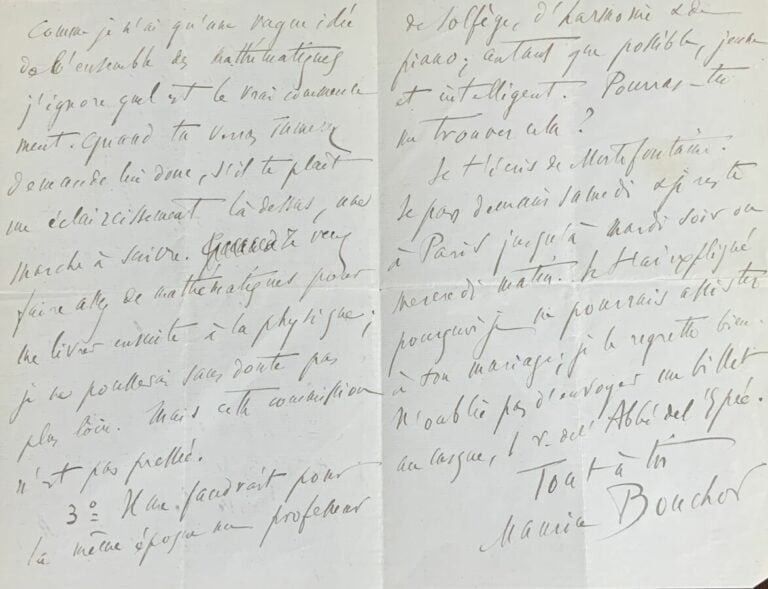 Comme je n'ai qu'une vague idée
de l'ensemble des mathématiques
j'ignore quel est le vrai commence
ment. Quand tu verras
demande lui donc, s'il te plaît
un éclaircissement là dessus, une
marche à suivre. Je veux
faire assez de mathématiques pour
me livrer ensuite à la physique;
je ne pousserai sans doute pas
plus loin. Mais cette commission
n'est pas pressée.
3º Il me faudrait pour
la même époque un professeur
de solfège, d'harmonie & de
piano; autant que possible, jeune
et intelligent. Pourras-tu
me trouver cela?
Je t'écris de Mortefontaine.
Je pars demain samedi & je reste
à Paris jusqu'à mardi soir ou
mercredi matin. Je t'ai expliqué
pourquoi je ne pourrais assister
à ton mariage; je le regrette bien.
N'oublie pas d'envoyer un billet
au casque, 1 r. de l'Abbé de l'Epée.
Tout à toi
Maurice Bouchor